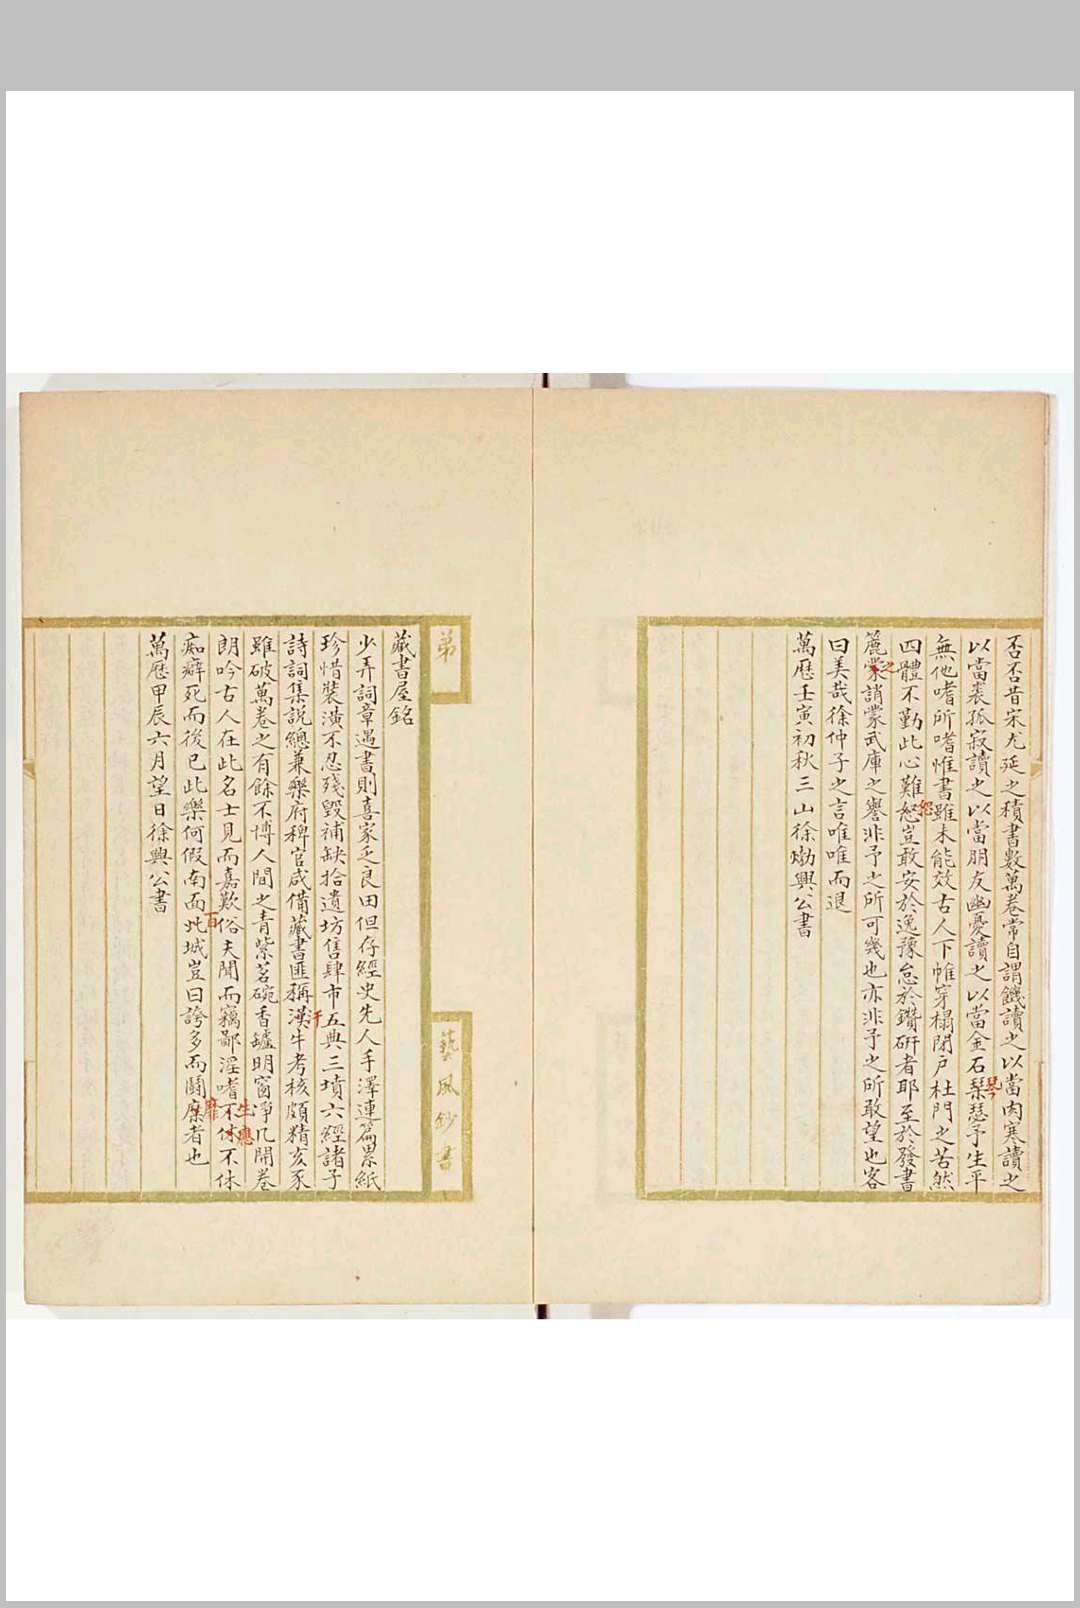 否否昔宋尤延之積書數萬卷常自謂饑讀之以當肉寒讀之
以當裘孤寂讀之以當朋友幽憂讀之以當金石琹瑟予生平
琴
無他嗜所嗜惟書雖未能效古人下帷穿榻閉戶杜門之苦然
四體不勤此心難怒豈敢安於逸豫怠於鑽研者耶至於發書
恕
簏蒙誚蒙武庫之譽非予之所可幾也亦非予之所敢望也客
之
曰美哉徐仲子之言唯唯而退
萬歷壬寅初秋三山徐𤊹興公書
弟
藝風鈔書
藏書屋銘
少弄詞章遇書則喜家乏良田但存經史先人手澤連篇累紙
珍惜裝潢不忍殘毀補缺拾遺坊售肆市五典三墳六經諸子
詩詞集說總兼樂府稗官咸備藏書匪稱漢牛考核頗精亥豕
汗
雖破萬卷之有餘不博人間之青紫茗碗香罏明窗淨几開卷
朗吟古人在此名士見而嘉歎俗夫聞而竊鄙淫嗜不休不休
生應
痴癖死而後已此樂何假南面北城豈曰誇多而鬪糜者也
百
靡
萬歷甲辰六月望日徐興公書